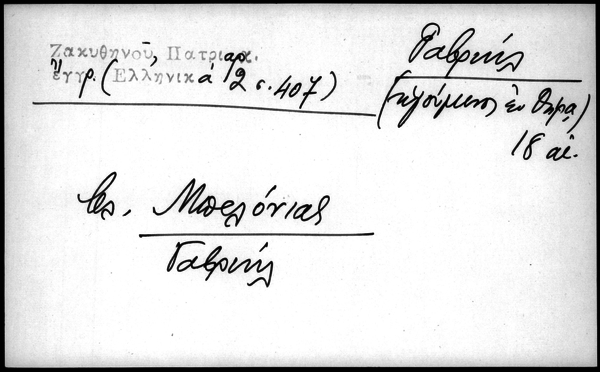 Γαβριήλ
Ζακυθηνοῦ, Πατριαρ.
ἔγγρ. (Ἑλληνικά 2 σ. 407)
(ἡγούμενος ἐν Θήρᾳ)
18 αἰ.
βλ. Μπελόνιας
Γαβριήλ